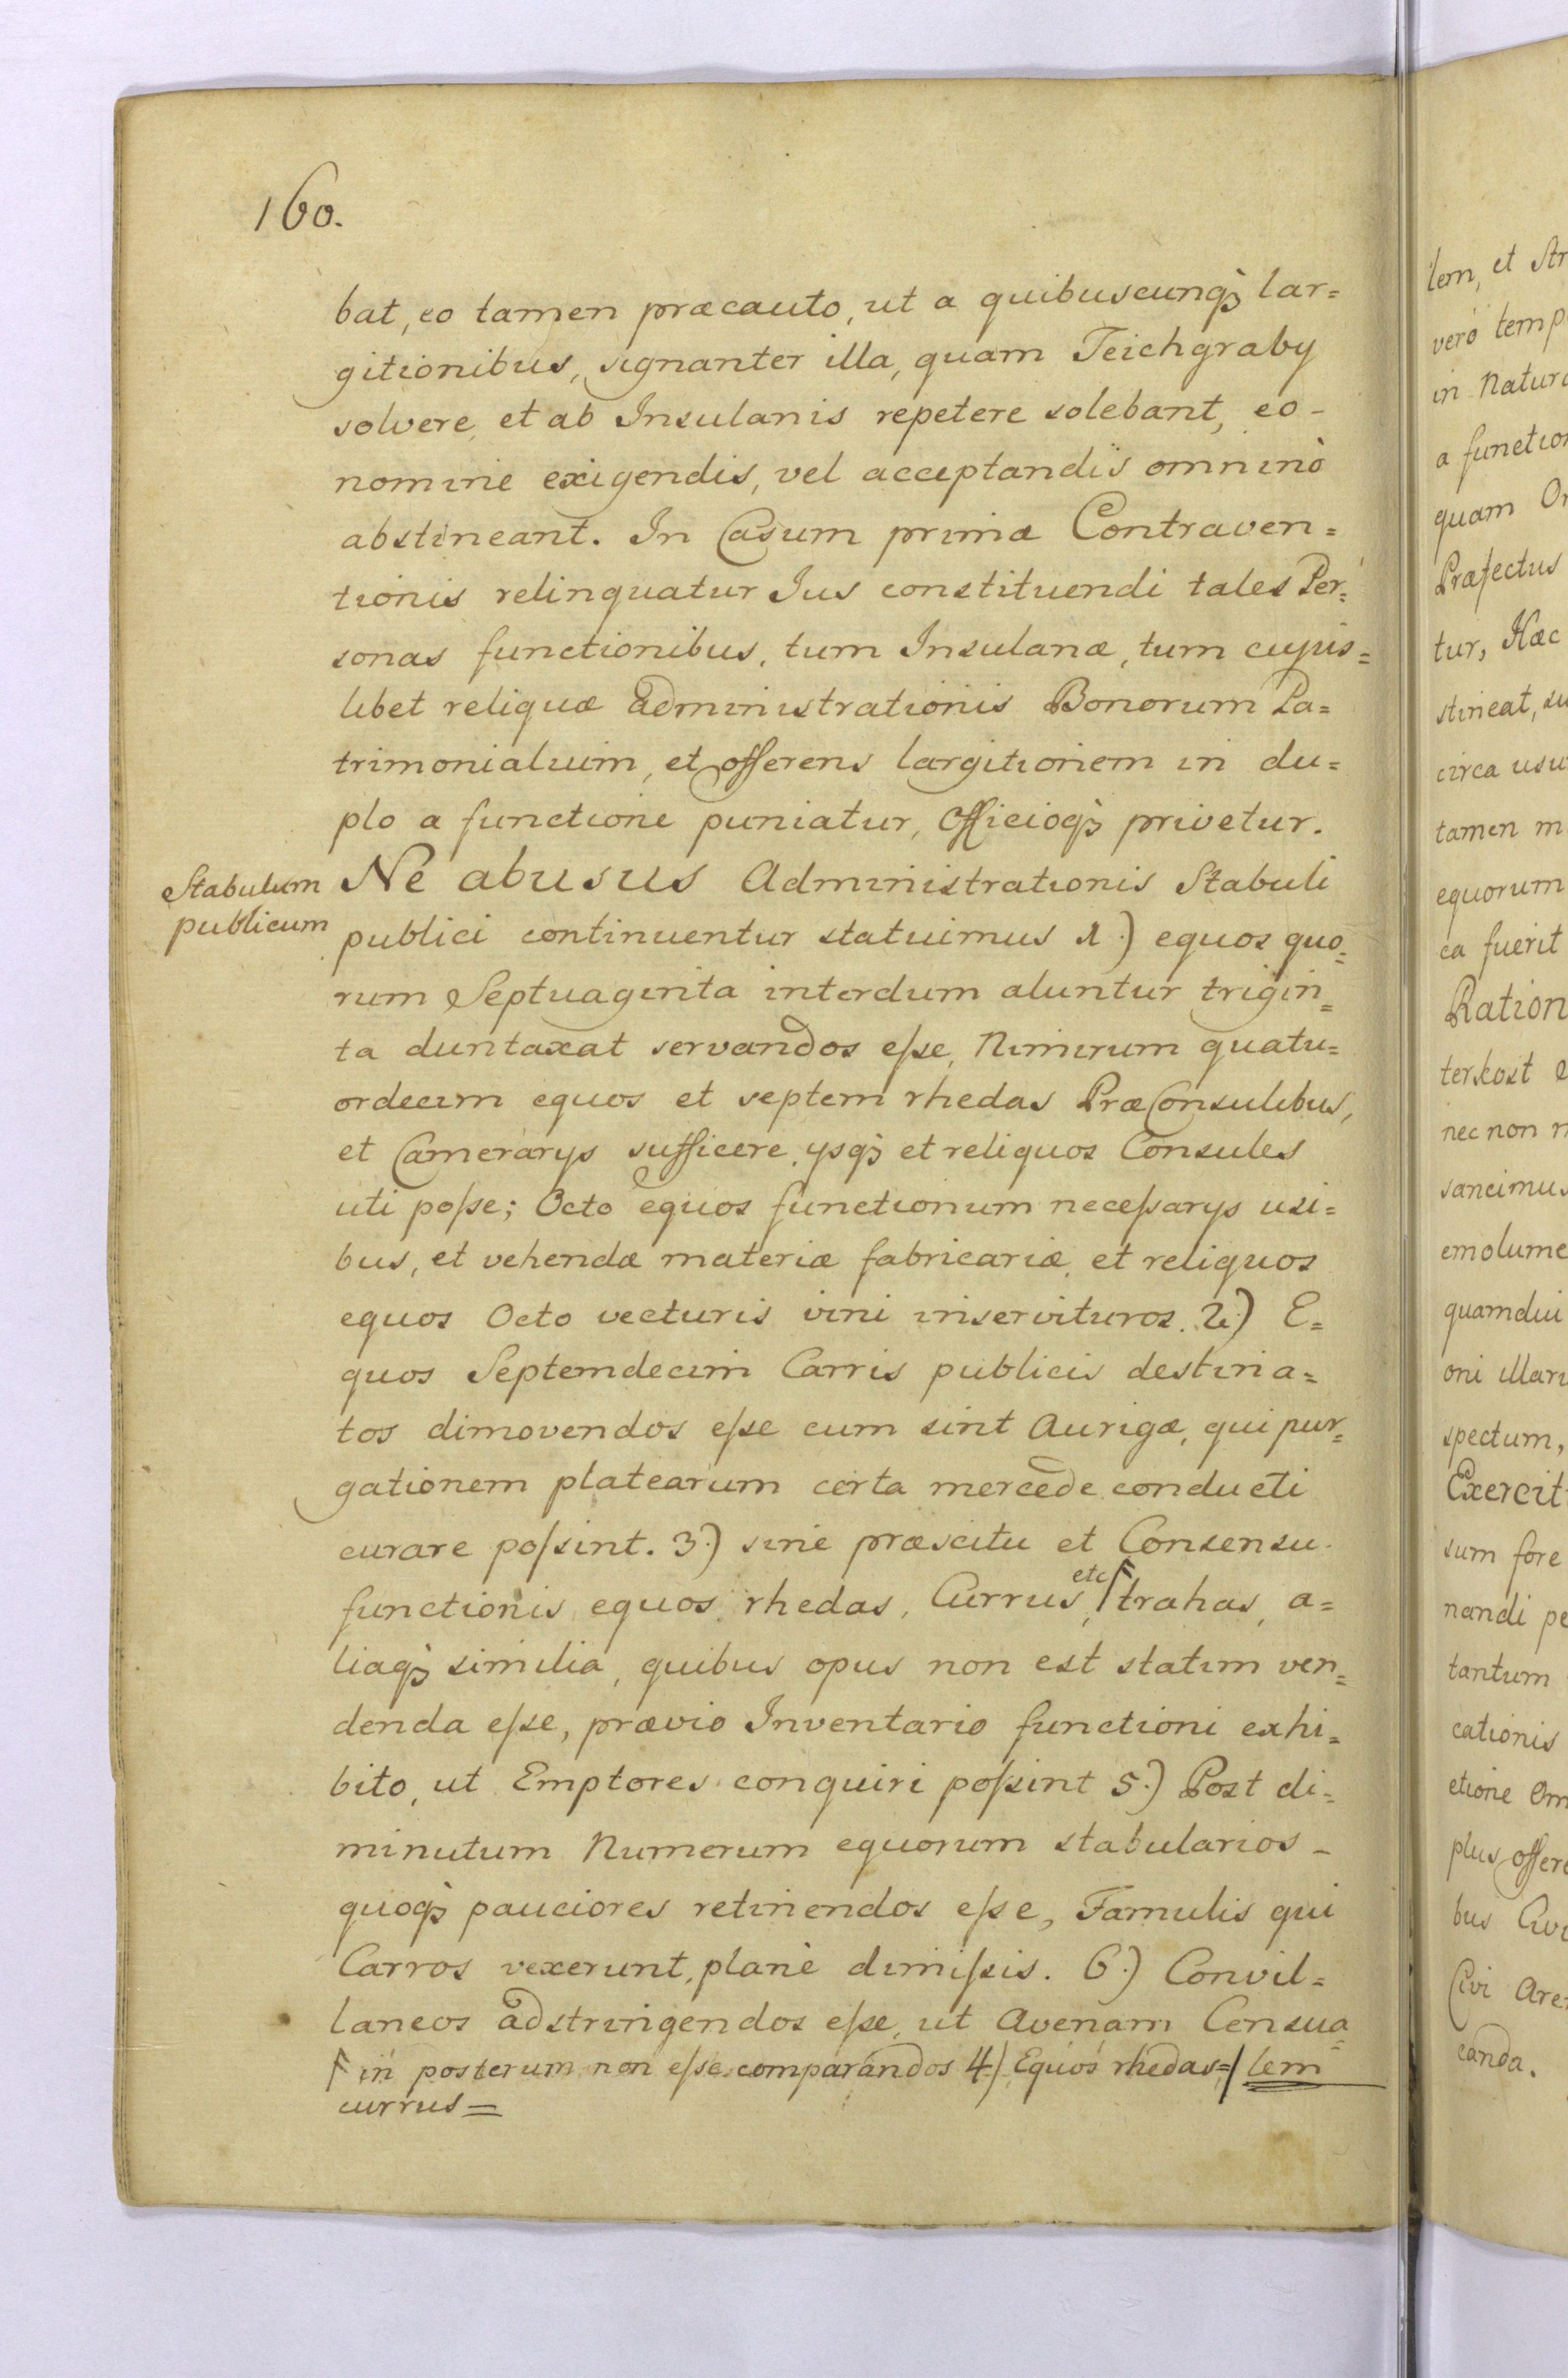 160.
bat, eo tamen præcauto, ut a quibuscunqꝫ lar=
gitionibus, signanter illa, quam Teichgraby
solvere et ab Insulanis repetere solebant, eo-
nomine exigendis, vel acceptandis omninò
abstineant. In Casum primæ Contraven=
tionis relinquatur Ius constituendi tales Per=
sonas functionibus, tum Insulanæ, tum cujus=
libet reliquæ administrationis Bonorum Pa=
trimonialium, et offerens largitionem in du=
plo a functione puniatur, Officioqꝫ privetur.
Stabulum
publicum
Ne abusus Administrationis Stabuli
publici continuentur statuimus 1.) equos quo=
rum Septuaginta interdum aluntur trigin=
ta duntaxat servandos eſse, Nimirum quatu=
ordecim equos et septem rhedas PræConsulibus,
et Camerarys sufficere, ysqꝫ et reliquos Consules
uti poſse; Octo equos functionum neceſsarys usi=
bus, et vehendæ materiæ fabricariæ, et reliquos
equos Octo vecturis vini inservituros. 2.) E=
quos Septemdecim Carris publicis destina=
tos dimovendos eſse cum sint Aurigæ, qui pur=
gationem platearum certa mercede conducti
curare poſsint. 3.) sine præscitu et Consensu
functionis equos, rhedas, Currus, etc Ⱶ trahas, a=
liaqꝫ similia, quibus opus non est statim ven=
denda eſse, prævio Inventario functioni exhi=
bito, ut Emptores conquiri poſsint 5.) Post di=
minutum Numerum equorum stabularios-
quoqꝫ pauciores retinendos eſse, Famulis qui
Carros vexerunt, planè dimiſsis. 6.) Convil=
laneos adstringendos eſse, ut Avenam Censua=
Ⱶ in posterum non eſse comparandos 4.) Equos rhedas=/ lem
currus=
lem, et Str
verò temp
in Natura
a function
quam Or
Præfectus
tur, Hæc
stineat, su
circa usu
tamen m
equorum
ea fuerit
Ration
terkost e
nec non n
sancimus
emolume
quamdiu
oni illari
spectum,
Exercit
sum fore
nandi pe
tantum
cationis
etione Om
plus offere
bus Civi
Civi Are
canda.